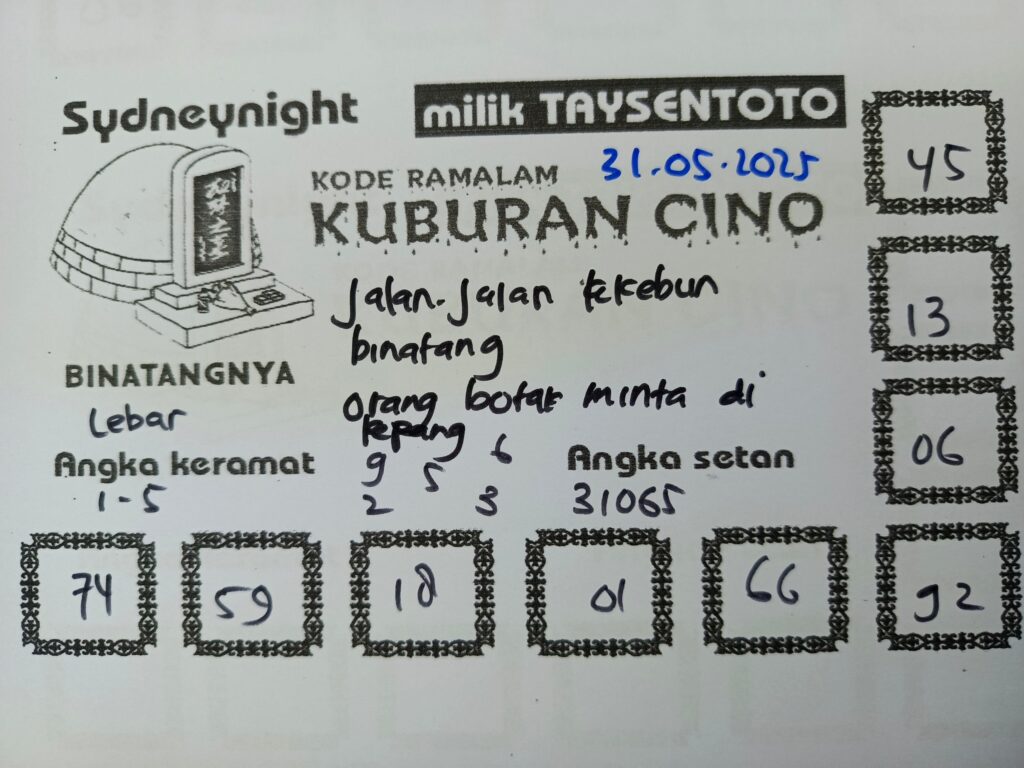 Sydneynight
milik TAYSENTOTO
31.05.2025
KODE RAMALAM
KUBURAN CINO
Jalan-Jalan kekebun
binatang
orang botak minta di
kepang
BINATANGNYA
Lebar
Angka keramat
1-5
9 5 6
2 3
Angka setan
31065
45
13
06
92
74 59 18 01 66